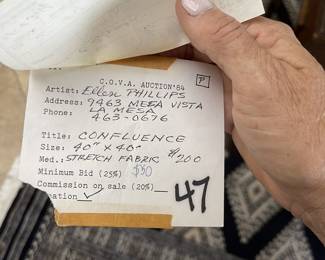 C.O.V.A. AUCTION'84
P
Artist: Ellen PHILLIPS
Address: 9463 MESA VISTA
LA MESA
Phone: 463-0676
Title: CONFLUENCE
Size: 40" x 40"
Med.: STRETCH FABRIC $200
Minimum Bid (25%) $50
Commission on sale (20%)
ation ✓
47